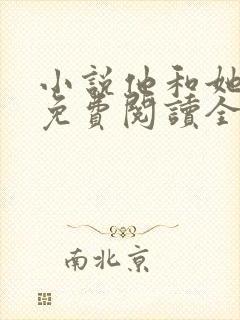 小說他和她
免費閱讀全
南北京